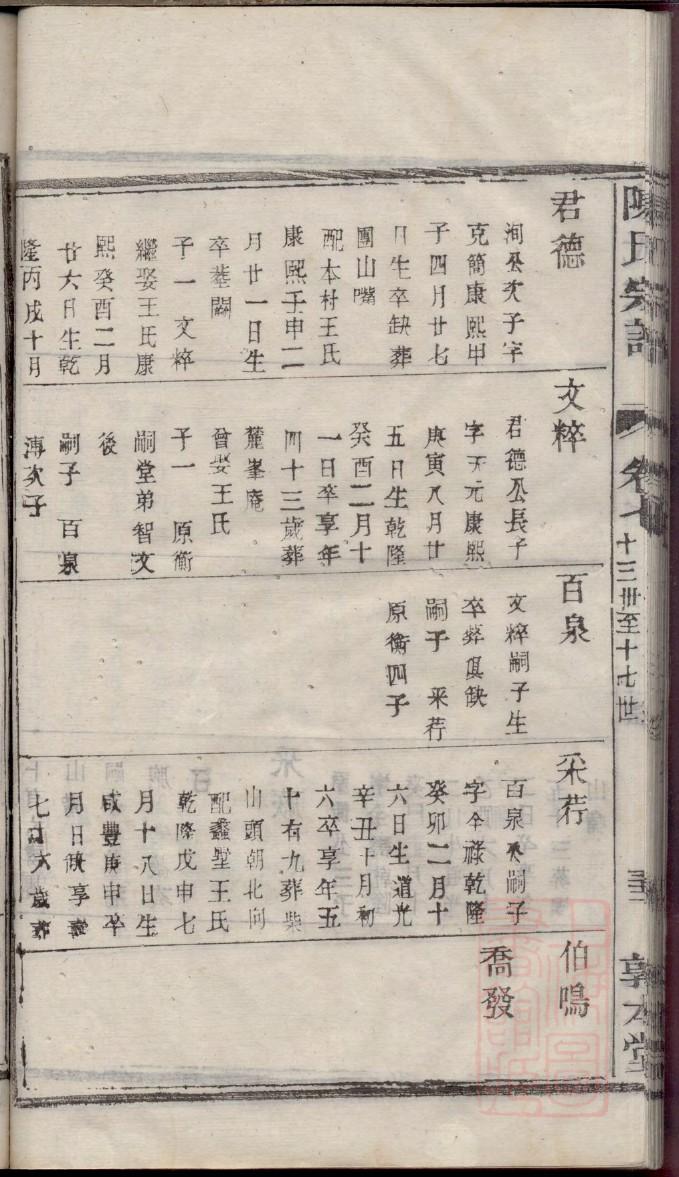 陳氏宗譜
卷七
十三世至十七世
敦本堂
君德
洵公次子字
克簡康熙甲
子四月廿七
日生卒缺葬
團山嘴
配本村王氏
康熙壬申二
月廿一日生
卒塟闕
子一文粹
繼娶王氏康
熙癸酉二月
廿六日生乾
隆丙戌十月
文粹
君德公長子
字天元康熙
庚寅八月廿
五日生乾隆
癸酉二月十
一日卒享年
四十三歲葬
麓峯庵
曾娶王氏
子一 原衡
嗣堂弟智文
後
嗣子 百泉
溥次子
百泉
文粹嗣子生
卒葬俱缺
嗣子 采荇
原衡四子
采荇
百泉公嗣子
字全祿乾隆
癸卯二月十
六日生道光
辛丑十月初
六卒享年五
十有九葬柴
山頭朝北向
配蠡墅王氏
乾隆戊申七
月十八日生
咸豐庚申卒
月日缺享壽
七十六歲葬
伯鳴
喬發